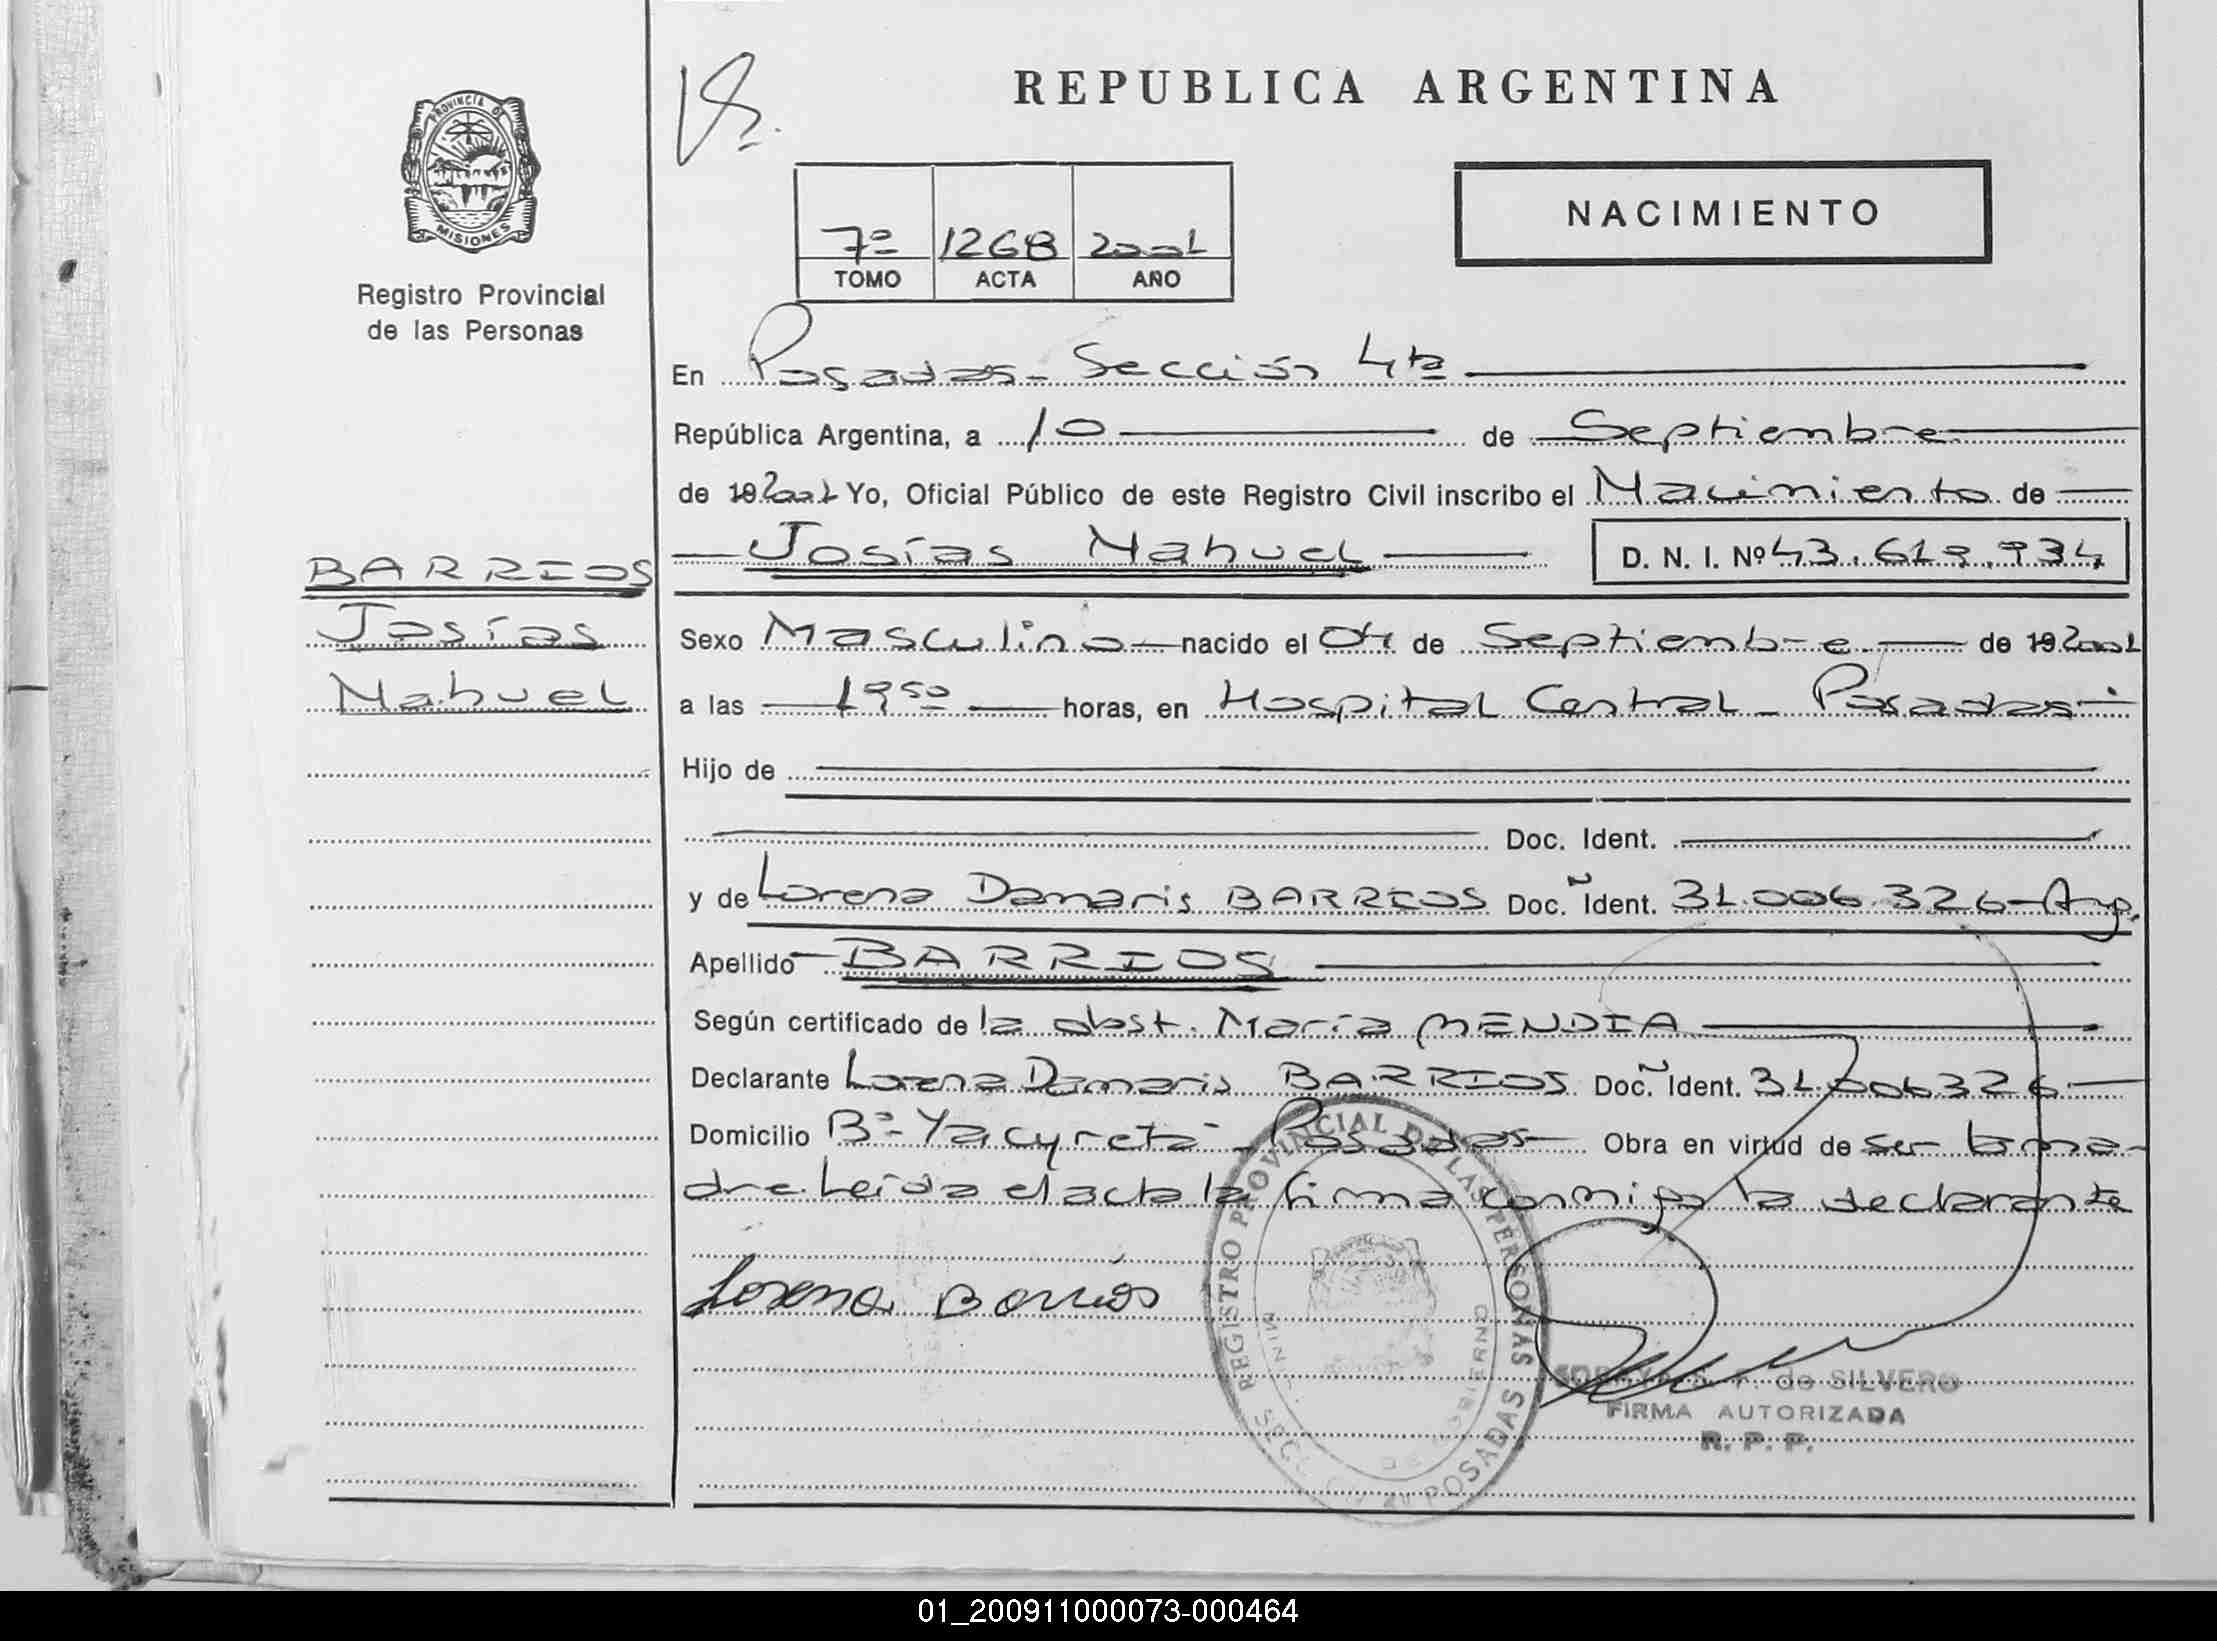 REPUBLICA ARGENTINA
PROVINCIA DE
MISIONES
Registro Provincial
de las Personas
7º 1268 2001
TOMO ACTA AÑO
NACIMIENTO
En Posadas - Sección 4ta
República Argentina, a 10 de Septiembre
de 19 2001 Yo, Oficial Público de este Registro Civil inscribo el Nacimiento de
Josías Nahuel D. N. I. Nº 43.619.934
BARRIOS
Josías
Nahuel
Sexo Masculino nacido el 04 de Septiembre de 19 2001
a las 19 50 horas, en Hospital Central - Posadas
Hijo de
Doc. Ident.
y de Lorena Damaris BARRIOS Doc. Ident. 31.006.326 - Arg.
Apellido BARRIOS
Según certificado de la obst. María MENDIA
Declarante Lorena Damaris BARRIOS Doc. Ident. 31.006.326
Domicilio Bº Yacyretá - Posadas Obra en virtud de ser la ma-
dre. Leída el acta la firma conmigo la declarante
Lorena Barrios
REGISTRO PROVINCIAL DE LAS PERSONAS
POSADAS
DE GOBIERNO
de SILVERO
FIRMA AUTORIZADA
R. P. P.
01_200911000073-000464